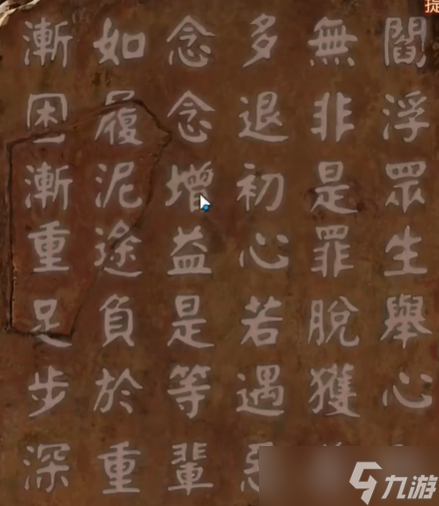 提
閻浮眾生舉心
無非是罪脫獲
多退初心若遇
念念增益是等輩
如履泥途負於重
漸困漸重足步深
九游